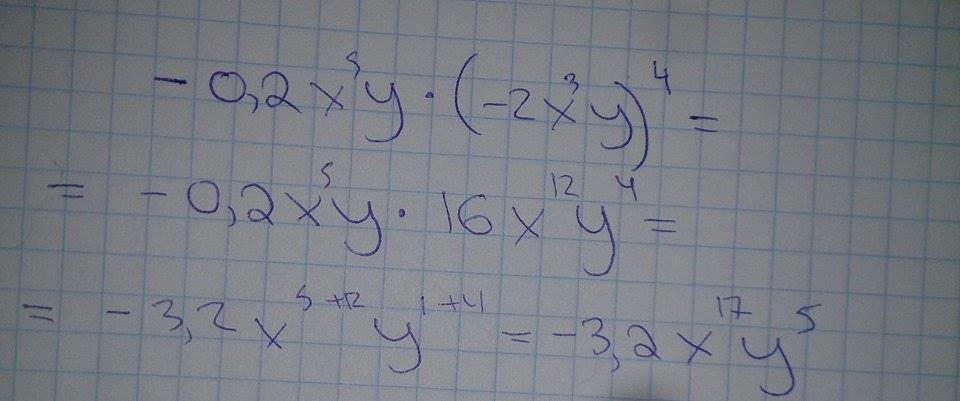 - 0,2x⁵y · (-2x³y)⁴ =
= - 0,2x⁵y · 16x¹²y⁴ =
= - 3,2x⁵⁺¹²y¹⁺⁴ = -3,2x¹⁷y⁵